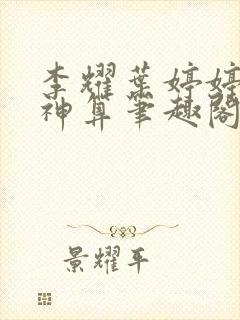 李耀葉婷婷
神算笔趣閣
景耀平